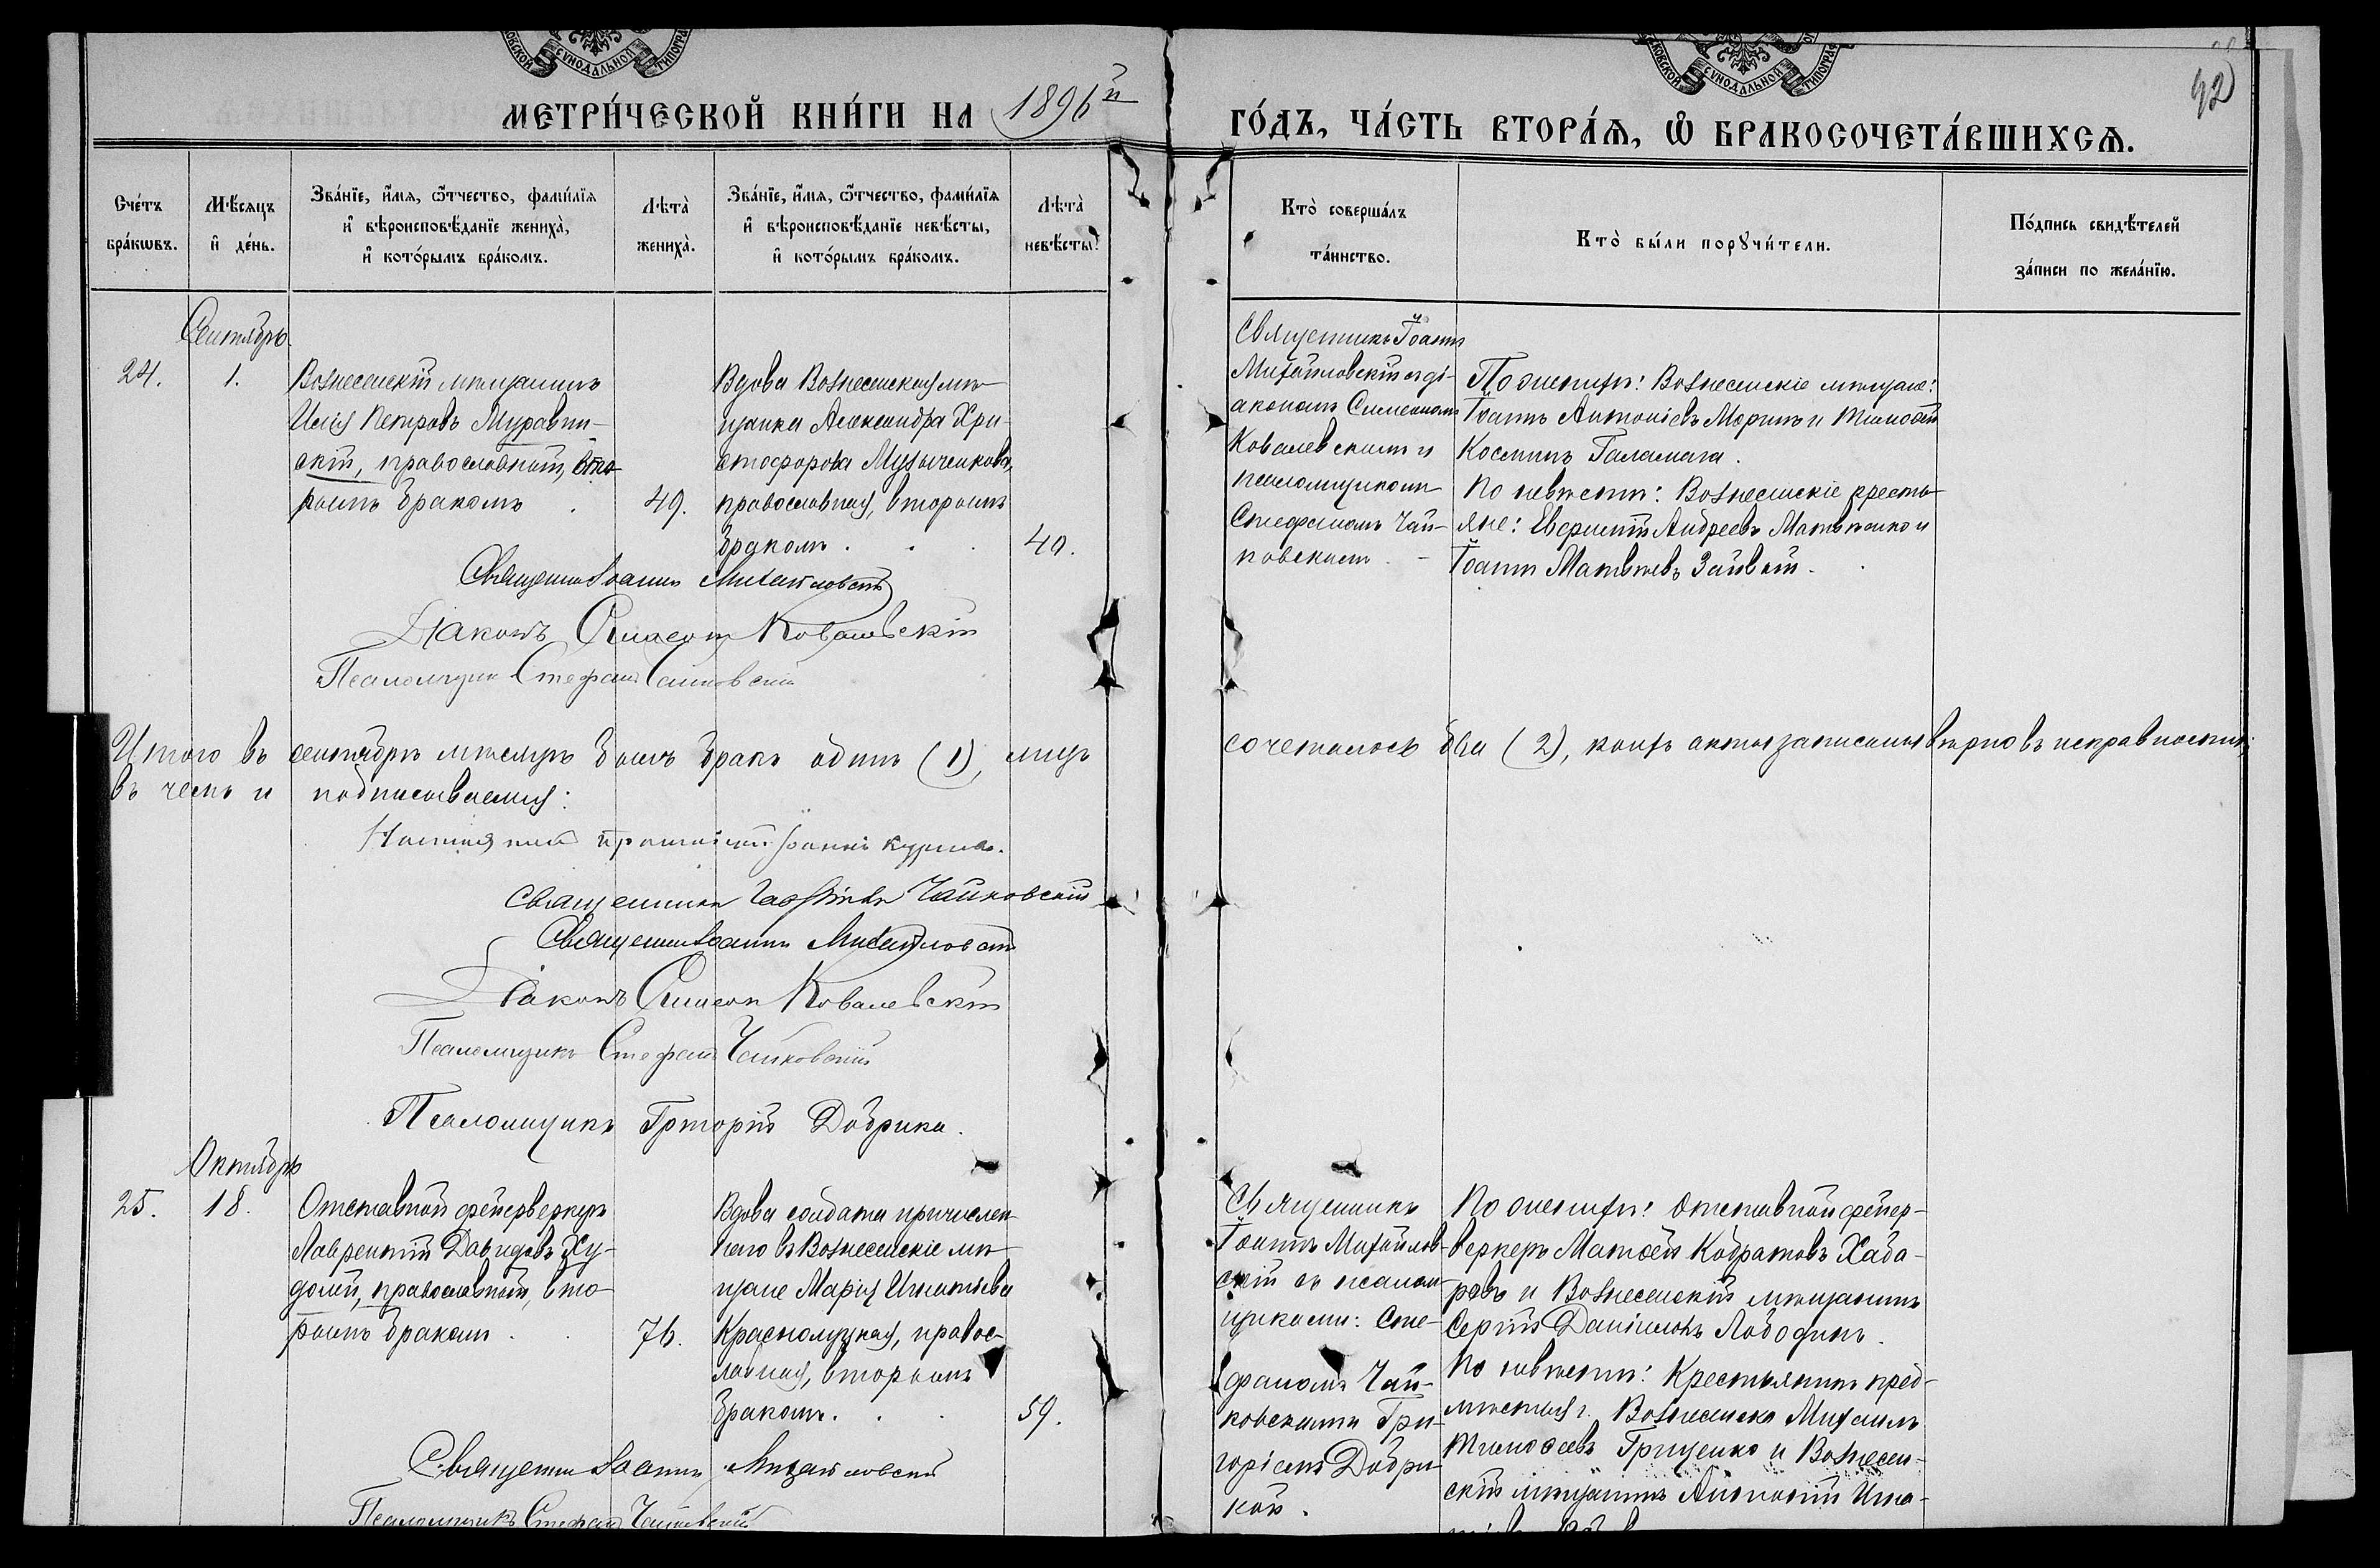 МЕТРИ́ЧЕСКОЙ КНИ́ГИ НА 1896й
ГО́ДЪ, ЧА́СТЬ ВТОРА́Ѧ, Ѽ БРАКОСОЧЕТА́ВШИХСѦ.
42
Сче́тъ бра́кѡвъ.
Мѣ́сѧцъ и҆ де́нь.
Зва́нїе, и҆́мѧ, ѻ҆́тчество, фами́лїѧ
и҆ вѣроисповѣ́данїе жениха̀,
и҆ кото́рымъ бра́комъ.
Лѣта̀ жениха̀.
Зва́нїе, и҆́мѧ, ѻ҆́тчество, фами́лїѧ
и҆ вѣроисповѣ́данїе невѣ́сты,
и҆ кото́рымъ бра́комъ.
Лѣта̀ невѣ́сты.
Кто̀ соверша́лъ
та́инство.
Кто̀ бы́ли порꙋчи́тели.
По́дпись свидѣ́телей
за́писи по жела́нїю.
Сентябрь
24.
1.
Вознесенскій мѣщанинъ
Илія Петровъ Муравин-
скій, православный, вто-
рымъ бракомъ
49.
Вдова Вознесенская мѣ-
щанка Александра Хри-
стофорова Музыченкова,
православная, вторымъ
бракомъ.
40.
Священникъ Іоаннъ
Михайловскій съ ді-
акономъ Симеономъ
Ковалевскимъ и
псаломщикомъ
Стефаномъ Чай-
ковскимъ.
По женихѣ: Вознесенскіе мѣщане:
Іоаннъ Антоніевъ Моринъ и Тимофей
Косминъ Галамага.
По невѣстѣ: Вознесенскіе кресть-
яне: Евфимій Андреевъ Матвѣенко и
Іоаннъ Матвѣевъ
Священникъ Іоаннъ Михайловскій
Діаконъ Симеонъ Ковалевскій
Псаломщикъ Стефанъ Чайковскій
Итого въ сентябрѣ мѣсяцѣ былъ бракъ одинъ (1), лицъ
сочеталось два (2), коихъ акты записаны вѣрно въ исправности,
въ чемъ и подписываемся:
Священникъ Чайковскій
Священникъ Іоаннъ Михайловскій
Діаконъ Симеонъ Ковалевскій
Псаломщикъ Стефанъ Чайковскій
Псаломщикъ Григорій Добрика.
Октябрь
25.
18.
Отставной фейерверкеръ
Лаврентій Давидовъ Ху-
долій, православный, вто-
рымъ бракомъ
76.
Вдова солдата причислен-
наго въ Вознесенскіе мѣ-
щане Марія Игнатьева
Краснолуцкая, правос-
лавная, вторымъ
бракомъ.
59.
Священникъ
Іоаннъ Михайлов-
скій съ псалом-
щиками: Сте-
фаномъ Чай-
ковскимъ и Гри-
горіемъ Добри-
кой.
По женихѣ: Отставной фейер-
веркеръ Матфей Кодратовъ Хаба-
ровъ и Вознесенскій мѣщанинъ
Сергій Даніиловъ Лободинъ.
По невѣстѣ: Крестьянинъ пред-
мѣстья г. Вознесенска Михаилъ
Тимофеевъ Гриценко и Вознесен-
скій мѣщанинъ Игна-
Священникъ Іоаннъ Михайловскій
Псаломщикъ Стефанъ Чайковскій